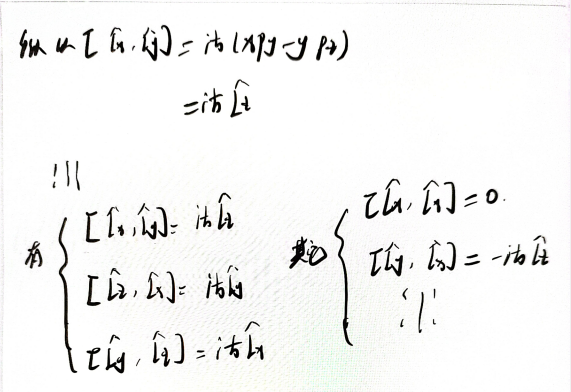 所以 [L̂x, L̂y] = iħ(xpy-ypx)
= iħL̂z
有 { [L̂x, L̂y] = iħL̂z
[L̂z, L̂x] = iħL̂y
[L̂y, L̂z] = iħL̂x
其它 { [L̂x, L̂x] = 0.
[L̂y, L̂x] = -iħL̂z